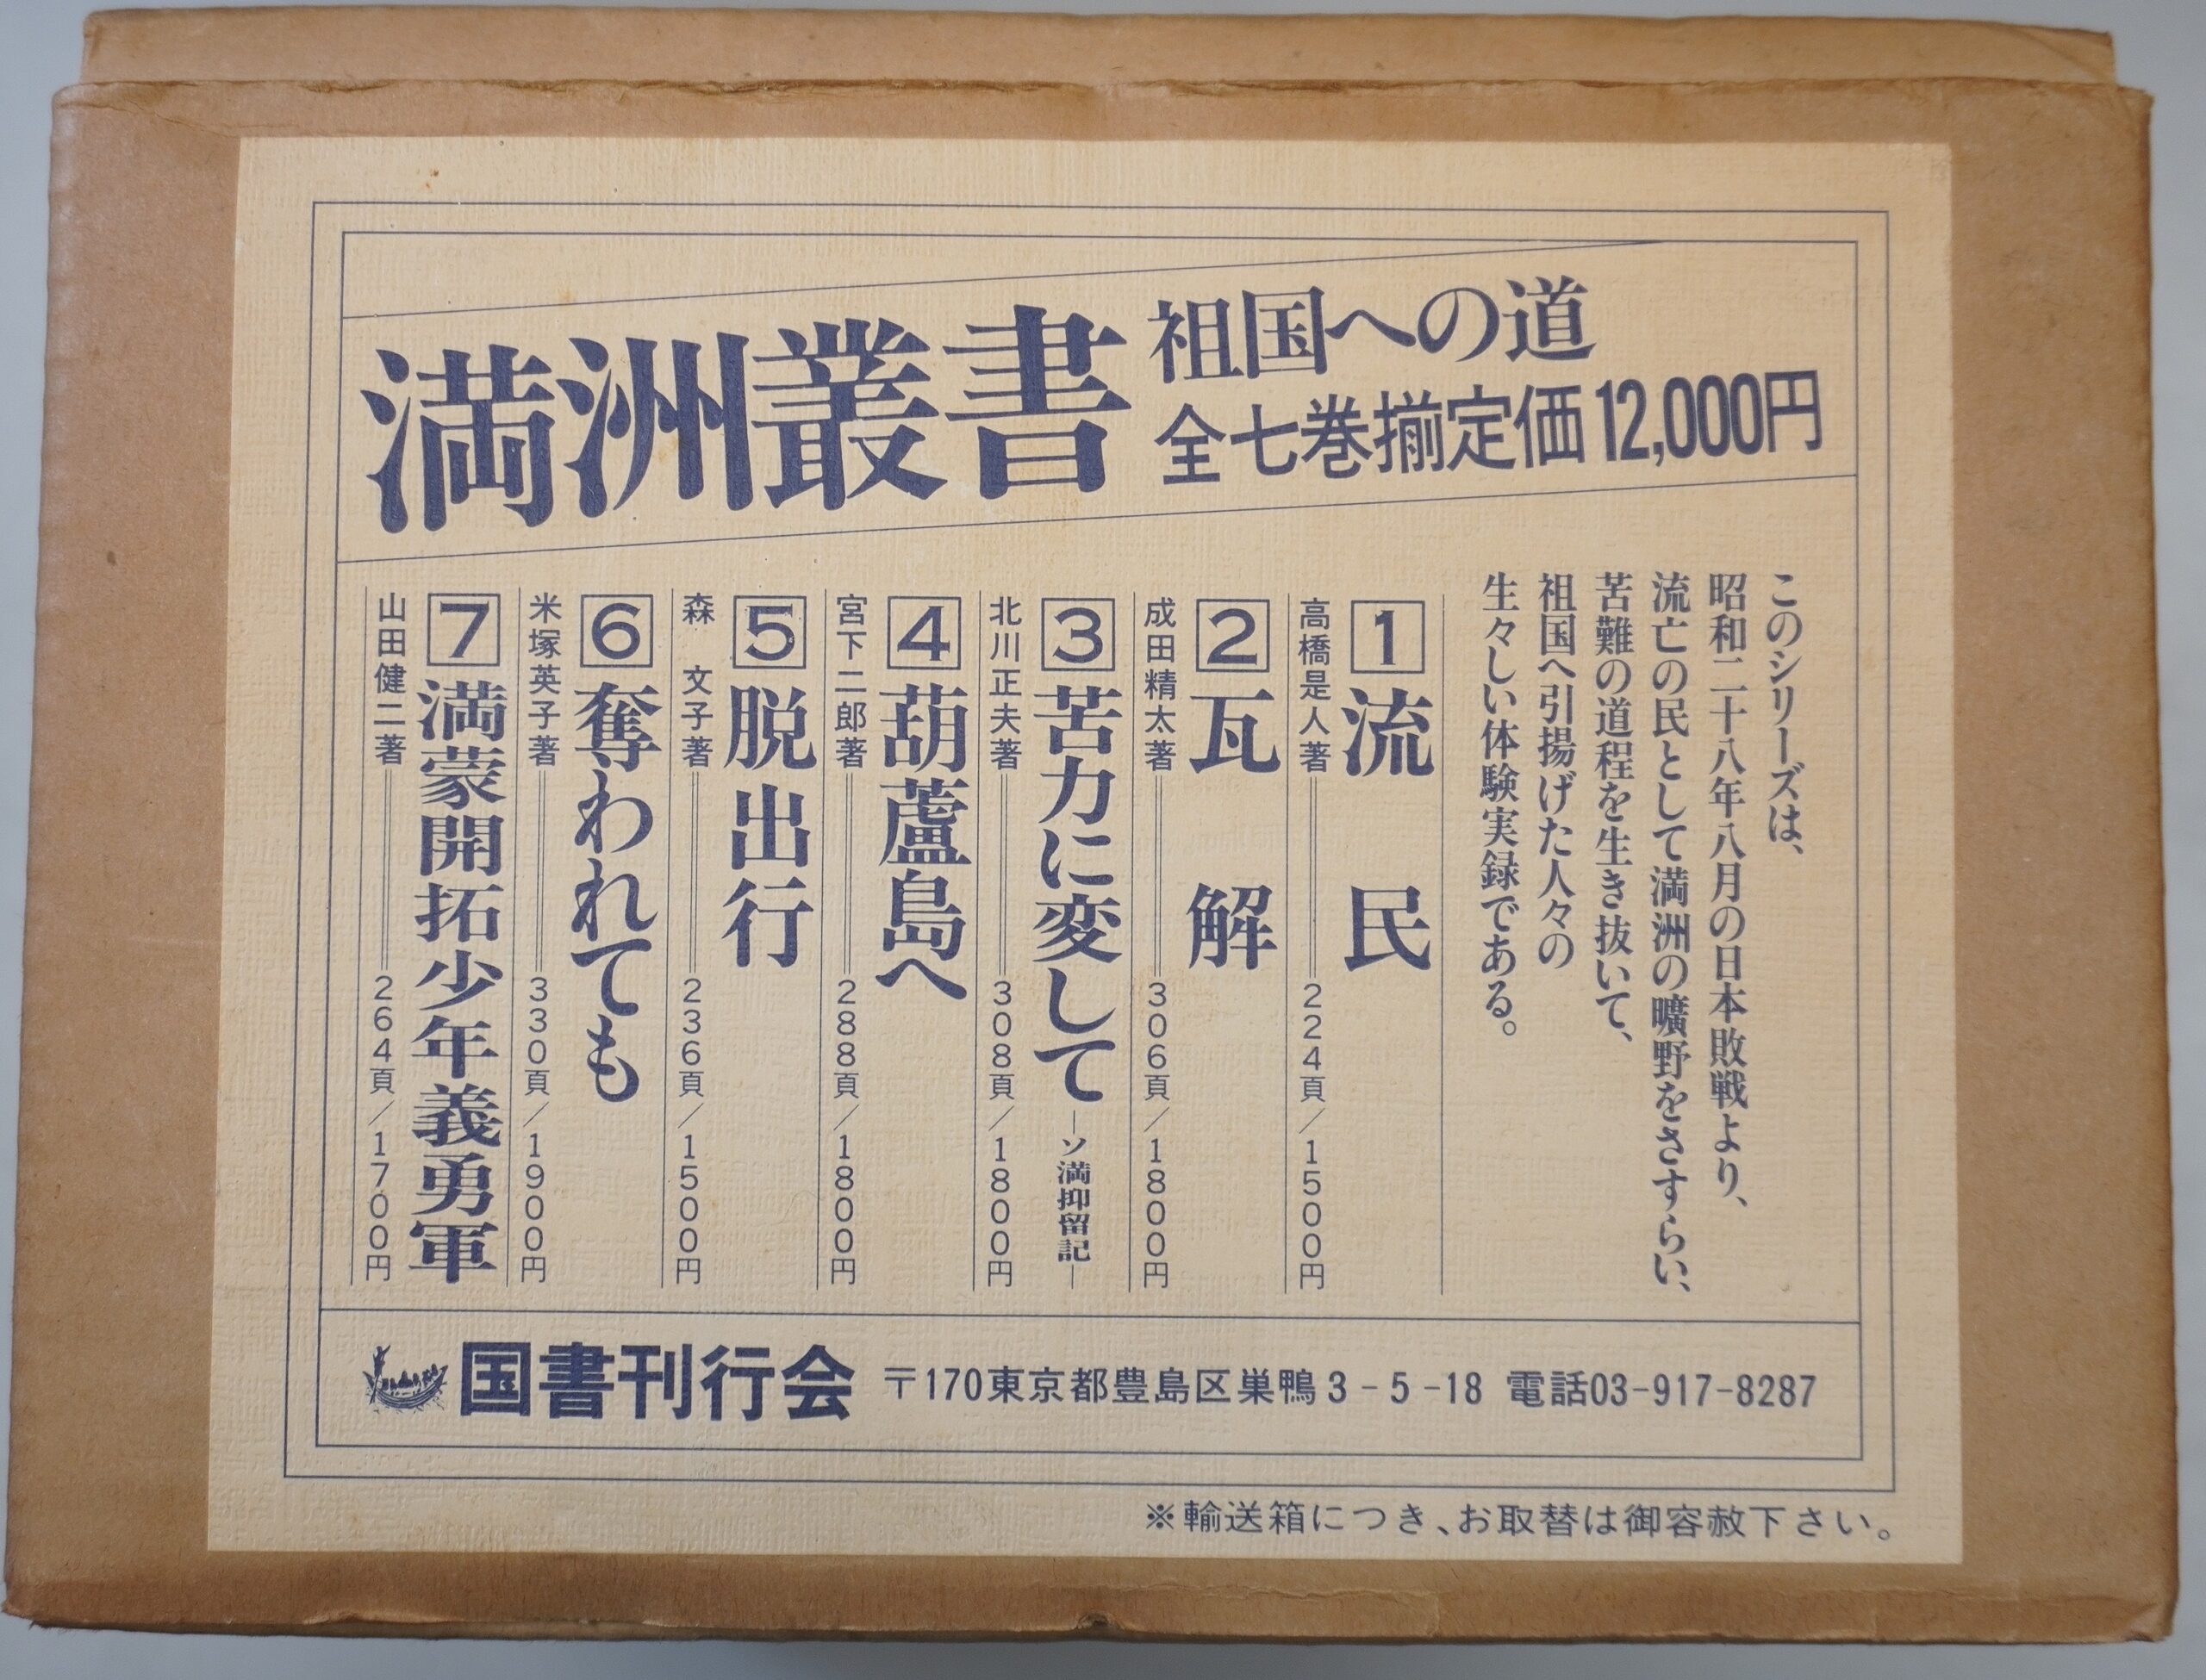 満洲叢書
祖国への道
全七巻揃定価12,000円
このシリーズは、
昭和二十八年八月の日本敗戦より、
流亡の民として満洲の曠野をさすらい、
苦難の道程を生き抜いて、
祖国へ引揚げた人々の
生々しい体験実録である。
1 流民
高橋是人著 224頁/1500円
2 瓦解
成田精太著 306頁/1800円
3 苦力に変して —ソ満抑留記—
北川正夫著 308頁/1800円
4 葫蘆島へ
宮下二郎著 288頁/1800円
5 脱出行
森 文子著 236頁/1500円
6 奪われても
米塚英子著 330頁/1900円
7 満蒙開拓少年義勇軍
山田健二著 264頁/1700円
国書刊行会 〒170東京都豊島区巣鴨3-5-18 電話03-917-8287
※輸送箱につき、お取替は御容赦下さい。